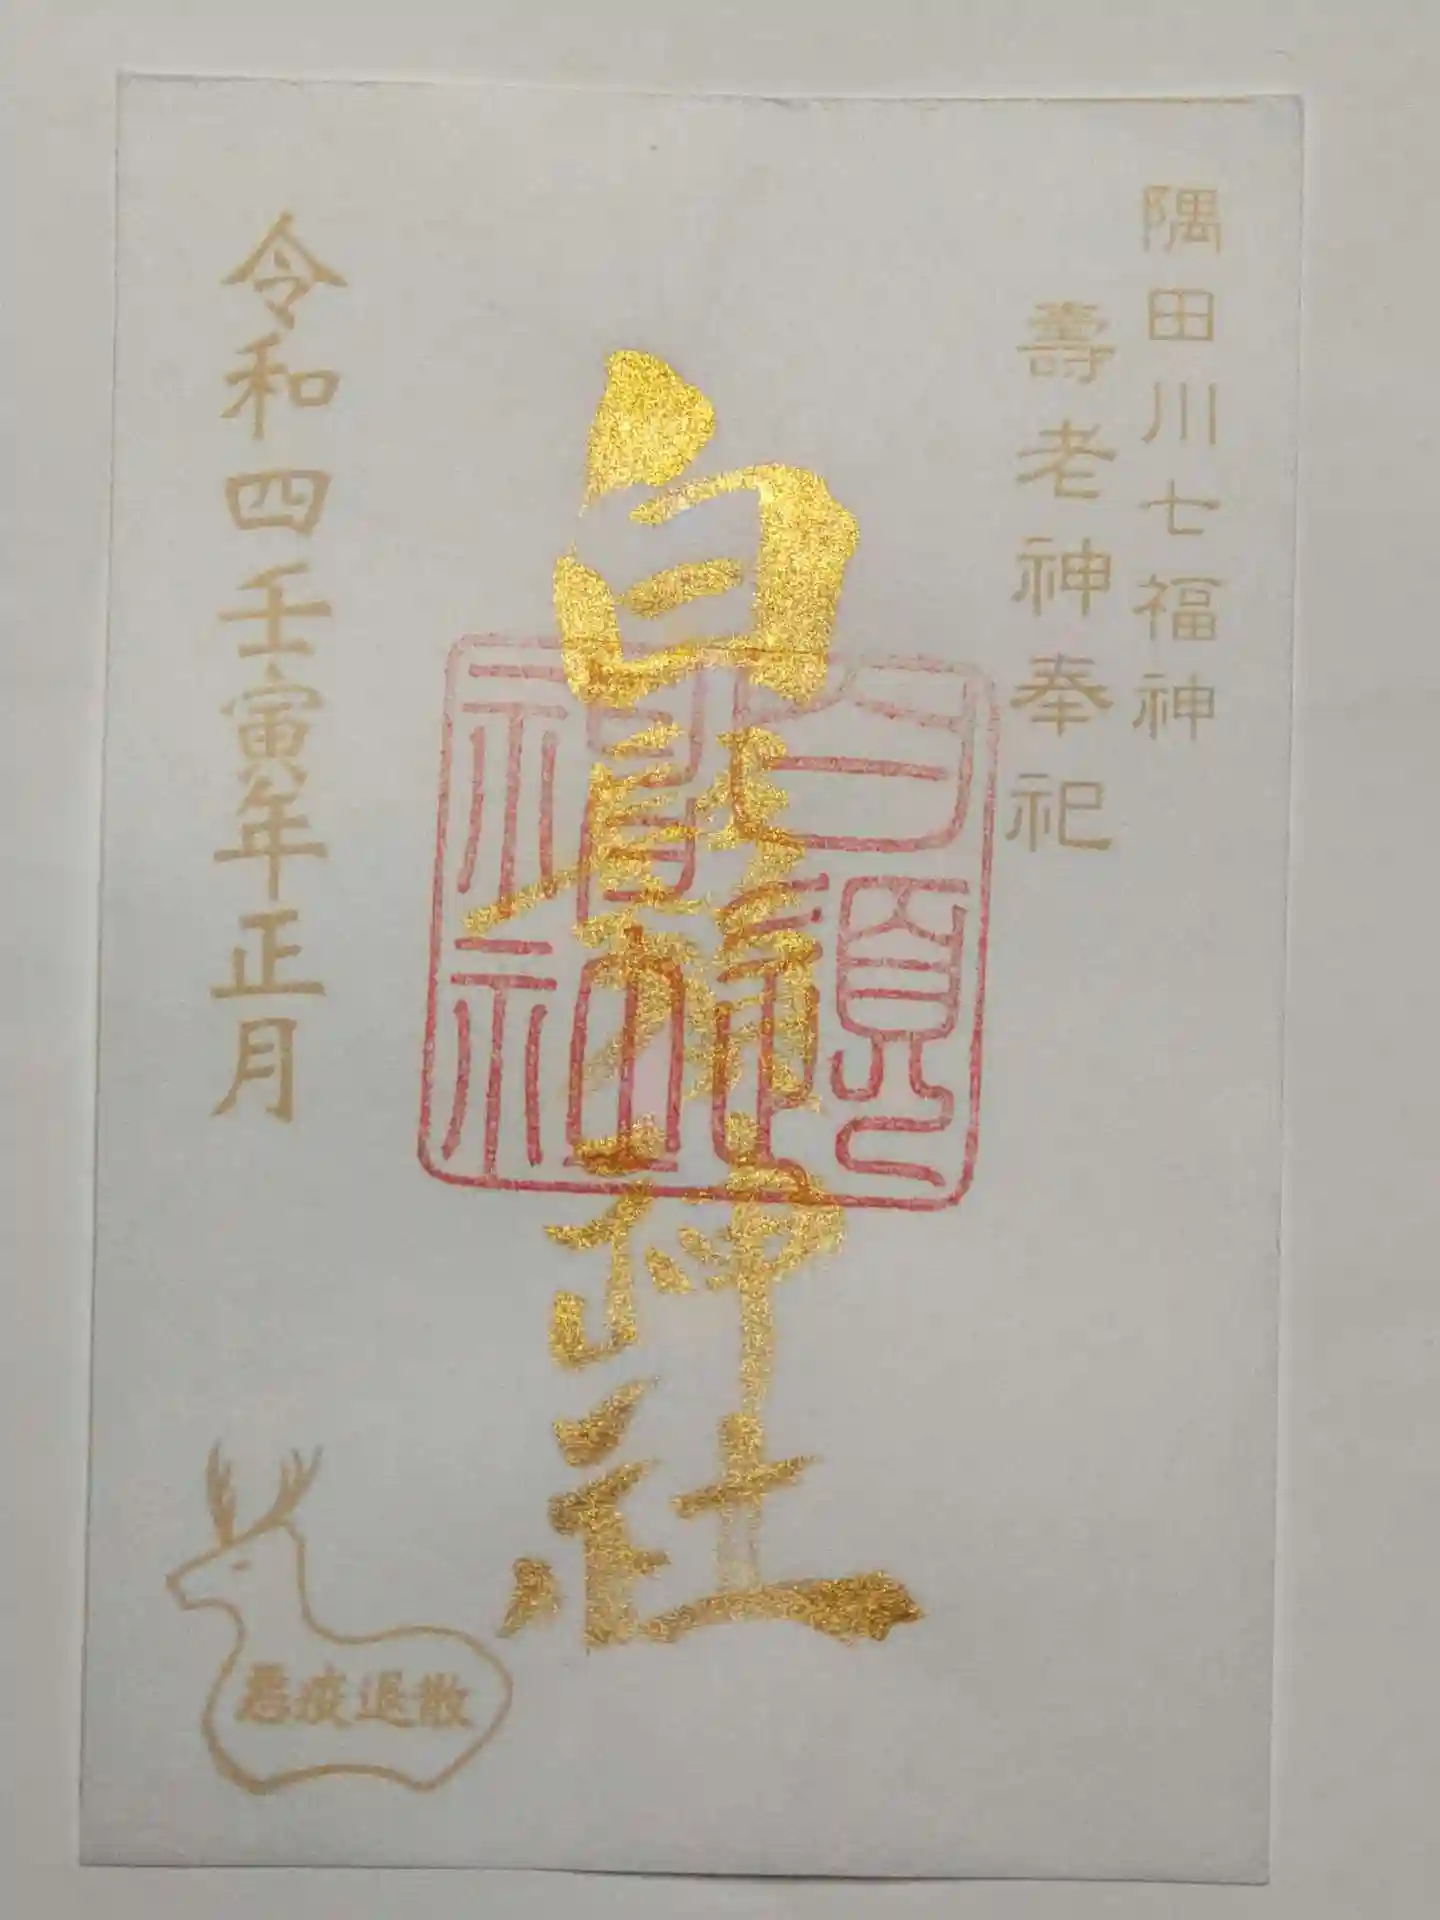 隅田川七福神
壽老神奉祀
白鬚神社
白鬚神社
令和四壬寅年正月
悪疫退散